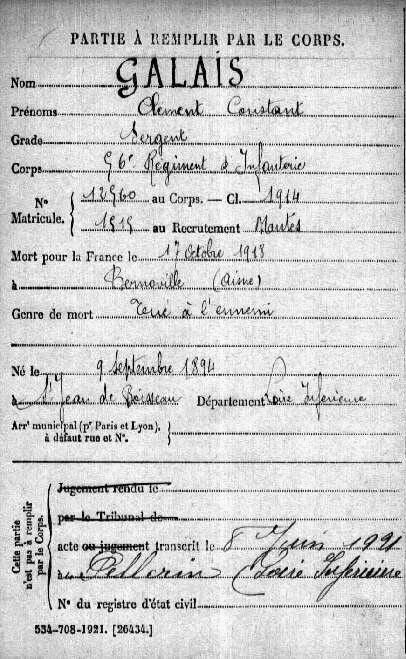 PARTIE À REMPLIR PAR LE CORPS.
Nom GALAIS
Prénoms Clement Constant
Grade Sergent
Corps 56e Régiment d'Infanterie
N° Matricule. { 12560 au Corps. — Cl. 1914
1515 au Recrutement Nantes
Mort pour la France le 17 Octobre 1918
à Bernoville (Aisne)
Genre de mort Tué à l'ennemi
Né le 9 septembre 1894
à St Jean de Boiseau Département Loire Inferieure
Arrt municipal (pr Paris et Lyon), à défaut rue et N°. {
Cette partie n'est pas à remplir par le Corps.
Jugement rendu le
par le Tribunal de
acte ou jugement transcrit le 8 Juin 1921
à Pellerin (Loire Inférieure
N° du registre d'état civil
534-708-1921. [26434.]